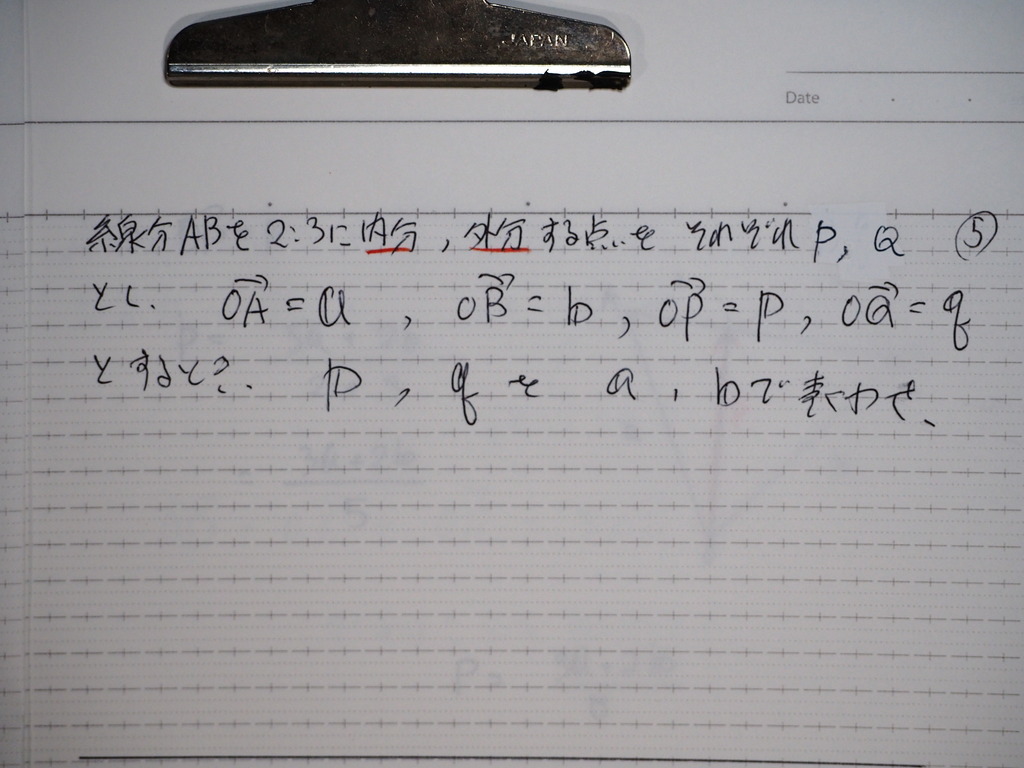 JAPAN
Date
線分ABを2:3に内分,外分する点をそれぞれP, Q ⑤
とし、 OA = a , OB = b, OP = p, OQ = q
とするとき、 p , q を a , b で表わせ、